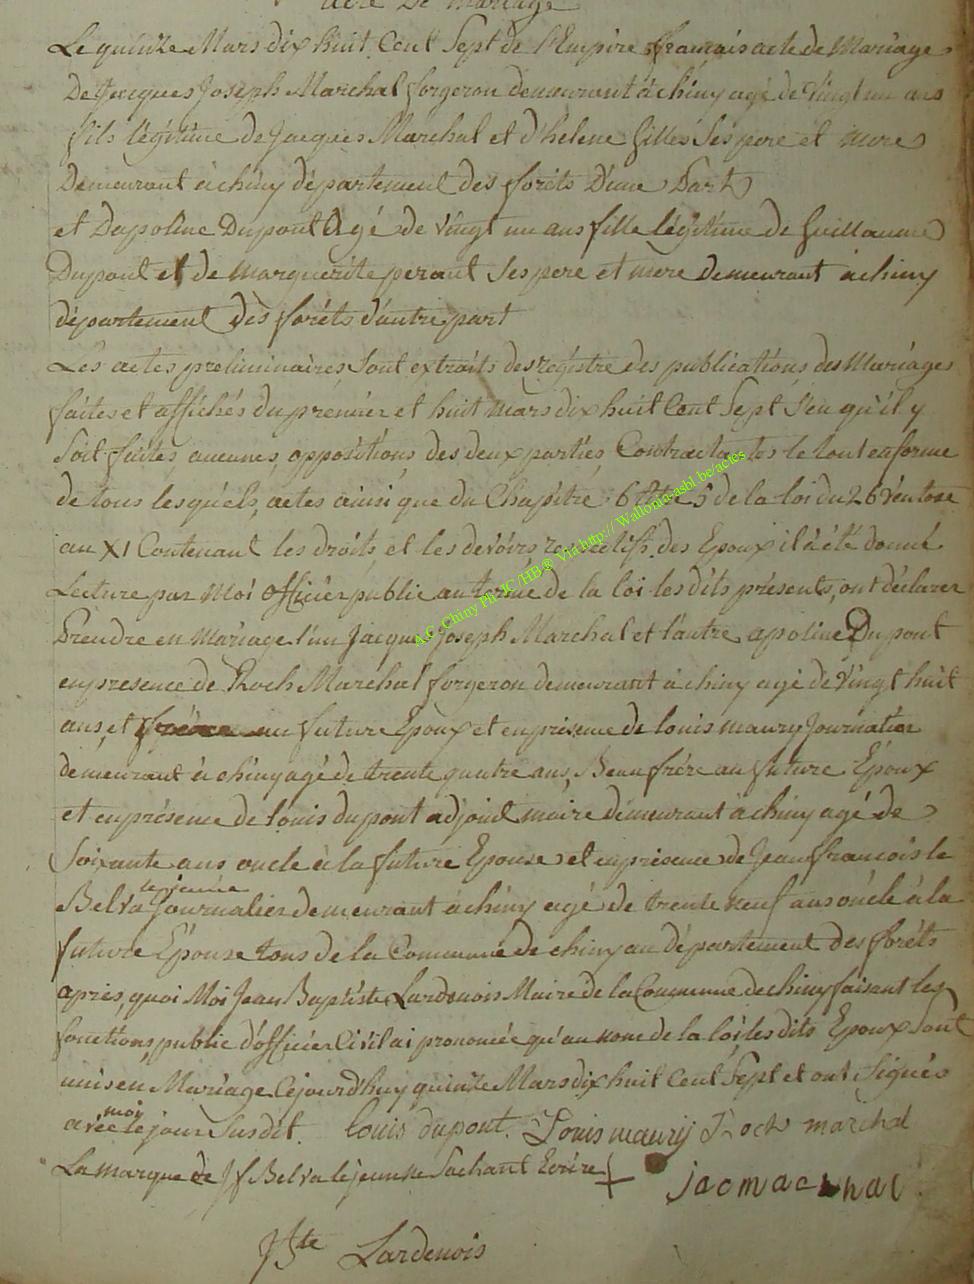 acte De mariage
Le quinze Mars dix huit Cent Sept de l'Empire français acte de Mariage
De Jacques Joseph Marchal forgeron demeurant à chiny agé de vingt un ans
fils légitime de Jacques Marchal et d'helene gilles Ses pere et mere
Demeurant à chiny département des forêts D'une Part
et Dapoline Dupont Agé de vingt un ans fille légitime de guillaume
Dupont et de marguerite perant Ses pere et mere demeurant à chiny
département dès forêts d'autre part
Les actes preliminaires Sont extraits des régistre des publications des Mariages
faites et affichés du premier et huit Mars dix huit Cent Sept S'en qu'il y
Soit faites aucunes oppositions des deux parties Contractantes le tout en forme
de tous lesquels actes ainsi que du Chapitre 6 titre 5 de la loi du 26 ventose
an XI Contenant les droits et les devoirs respectifs des Epoux il à été donné
Lecture par Moi officier public au terme de la loi les dits présents ont déclarer
Prendre en mariage l'un Jacques Joseph Marchal et l'autre apoline Dupont
en presence de Roch Marchal forgeron demeurant à chiny agé de vingt huit
ans et frére au future Epoux et en présence de louis maury Journalier
demeurant à chiny agé de trente quatre ans Beau frére au future Epoux
et en présence de louis dupont adjoint maire demeurant à chiny agé de
Soixante ans oncle à la future Epouse et en présence de Jean francois le
Belva le jeune Journalier demeurant à chiny agé de trente neuf ans oncle à la
future Epouse tous de la Commune de chiny au département des forêts
après quoi Moi Jean Baptiste Lardenois Maire de la Commune de chiny faisant les
fonctions public d'officier Civil ai prononcée qu'au nom de la loi les dits Epoux Sont
unis en Mariage Cejourd'huy quinze Mars dix huit Cent Sept et ont Signés
avec moi le jour Susdit. louis dupont. Louis maury Roch marchal
La marque de J f Belva le jeune Sachant Ecrire + jac marchal
J Bte Lardenois
A.C. Chiny Ph JC /HB® Via http:// Wallonia-asbl.be/actes